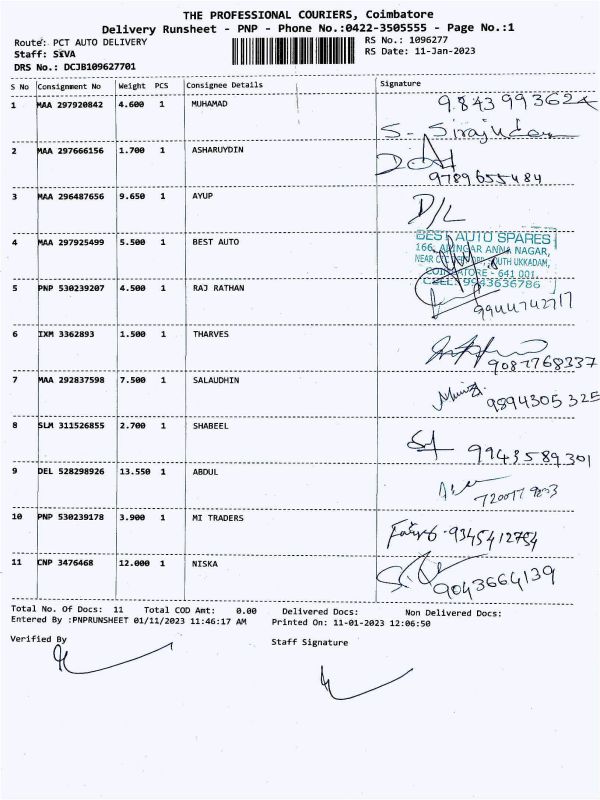 THE PROFESSIONAL COURIERS, Coimbatore
Delivery Runsheet - PNP - Phone No.:0422-3505555 - Page No.:1
Route: PCT AUTO DELIVERY
RS No.: 1096277
Staff: SIVA
RS Date: 11-Jan-2023
DRS No.: DCJB109627701
S No Consignment No Weight PCS Consignee Details Signature
1 MAA 297920842 4.600 1 MUHAMAD 9843993624
S- Sirajudeen
2 MAA 297666156 1.700 1 ASHARUYDIN
9789655484
3 MAA 296487656 9.650 1 AYUP D/L
4 MAA 297925499 5.500 1 BEST AUTO
BEST AUTO SPARES
166, ANNA NAGAR,
NEAR UKKADAM,
COIMBATORE - 641 001.
CELL: 9943636786
5 PNP 530239207 4.500 1 RAJ RATHAN
9944742717
6 IXM 3362893 1.500 1 THARVES
9087768337
7 MAA 292837598 7.500 1 SALAUDHIN
9894305325
8 SLM 311526855 2.700 1 SHABEEL
9943589301
9 DEL 528298926 13.550 1 ABDUL
10 PNP 530239178 3.900 1 MI TRADERS
9345412754
11 CNP 3476468 12.000 1 NISKA
9043664139
Total No. Of Docs: 11 Total COD Amt: 0.00 Delivered Docs: Non Delivered Docs:
Entered By :PNPRUNSHEET 01/11/2023 11:46:17 AM Printed On: 11-01-2023 12:06:50
Verified By
Staff Signature